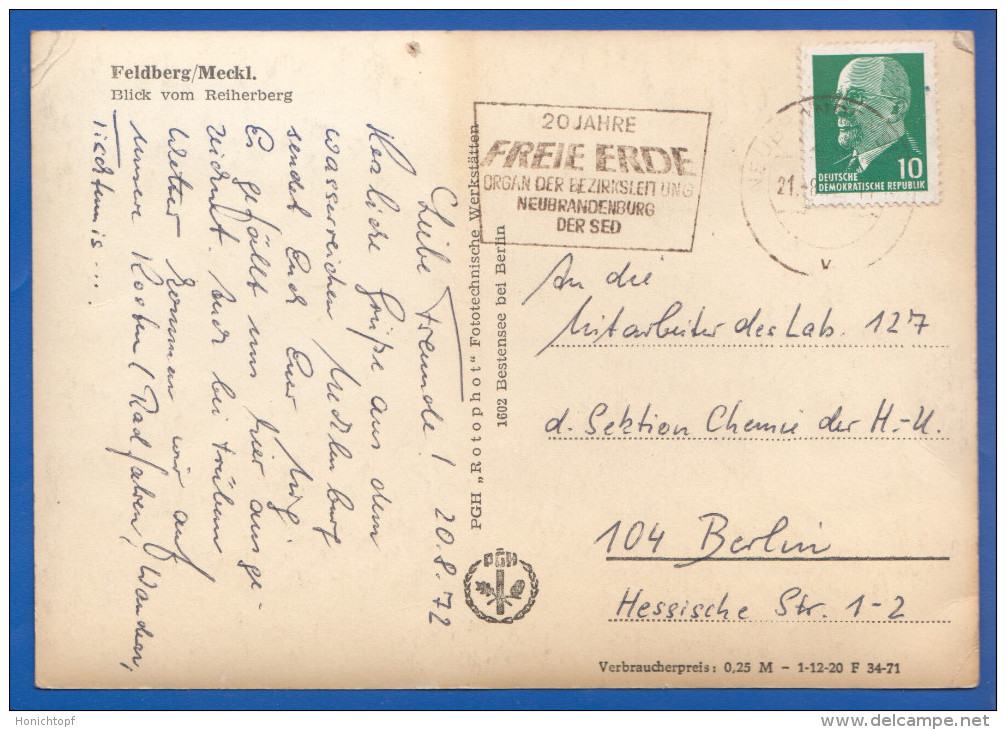 Feldberg/Meckl.
Blick vom Reiherberg
Liebe Freunde! 20.8.72
Herzliche Grüße aus dem
wasserreichen Mecklenburg
sendet Euch Eur
Es gefällt uns hier ausge-
zeichnet. Auch bei trübem
Wetter kommen wir auf
unsere Kosten (Radfahren, Wandern,
PGH „Rotophot“ Fototechnische Werkstätten
1602 Bestensee bei Berlin
PGH
20 JAHRE
FREIE ERDE
ORGAN DER BEZIRKSLEITUNG
NEUBRANDENBURG
DER SED
21.-8
V
10
DEUTSCHE
DEMOKRATISCHE REPUBLIK
An die
Mitarbeiter des Lab. 127
d. Sektion Chemie der H.-U.
104 Berlin
Hessische Str. 1-2
Verbraucherpreis: 0,25 M - 1-12-20 F 34-71
Honichtopf
delcampe.net